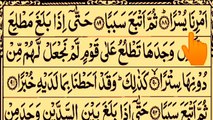 اَمْرِنَا يُسْرًا ۸۸ ثُمَّ اَتْبَعَ سَبَبًا ۸۹ حَتّٰۤى اِذَا بَلَغَ مَطْلِعَ
وَجَدَهَا تَطْلُعُ عَلٰى قَوْمٍ لَّمْ نَجْعَلْ لَّهُمْ مِّنْ
دُوْنِهَا سِتْرًا ۹۰ كَذٰلِكَ ؕ وَقَدْ اَحَطْنَا بِمَا لَدَيْهِ خُبْرًا ۹۱
ثُمَّ اَتْبَعَ سَبَبًا ۹۲ حَتّٰۤى اِذَا بَلَغَ بَيْنَ السَّدَّيْنِ وَجَدَ مِنْ